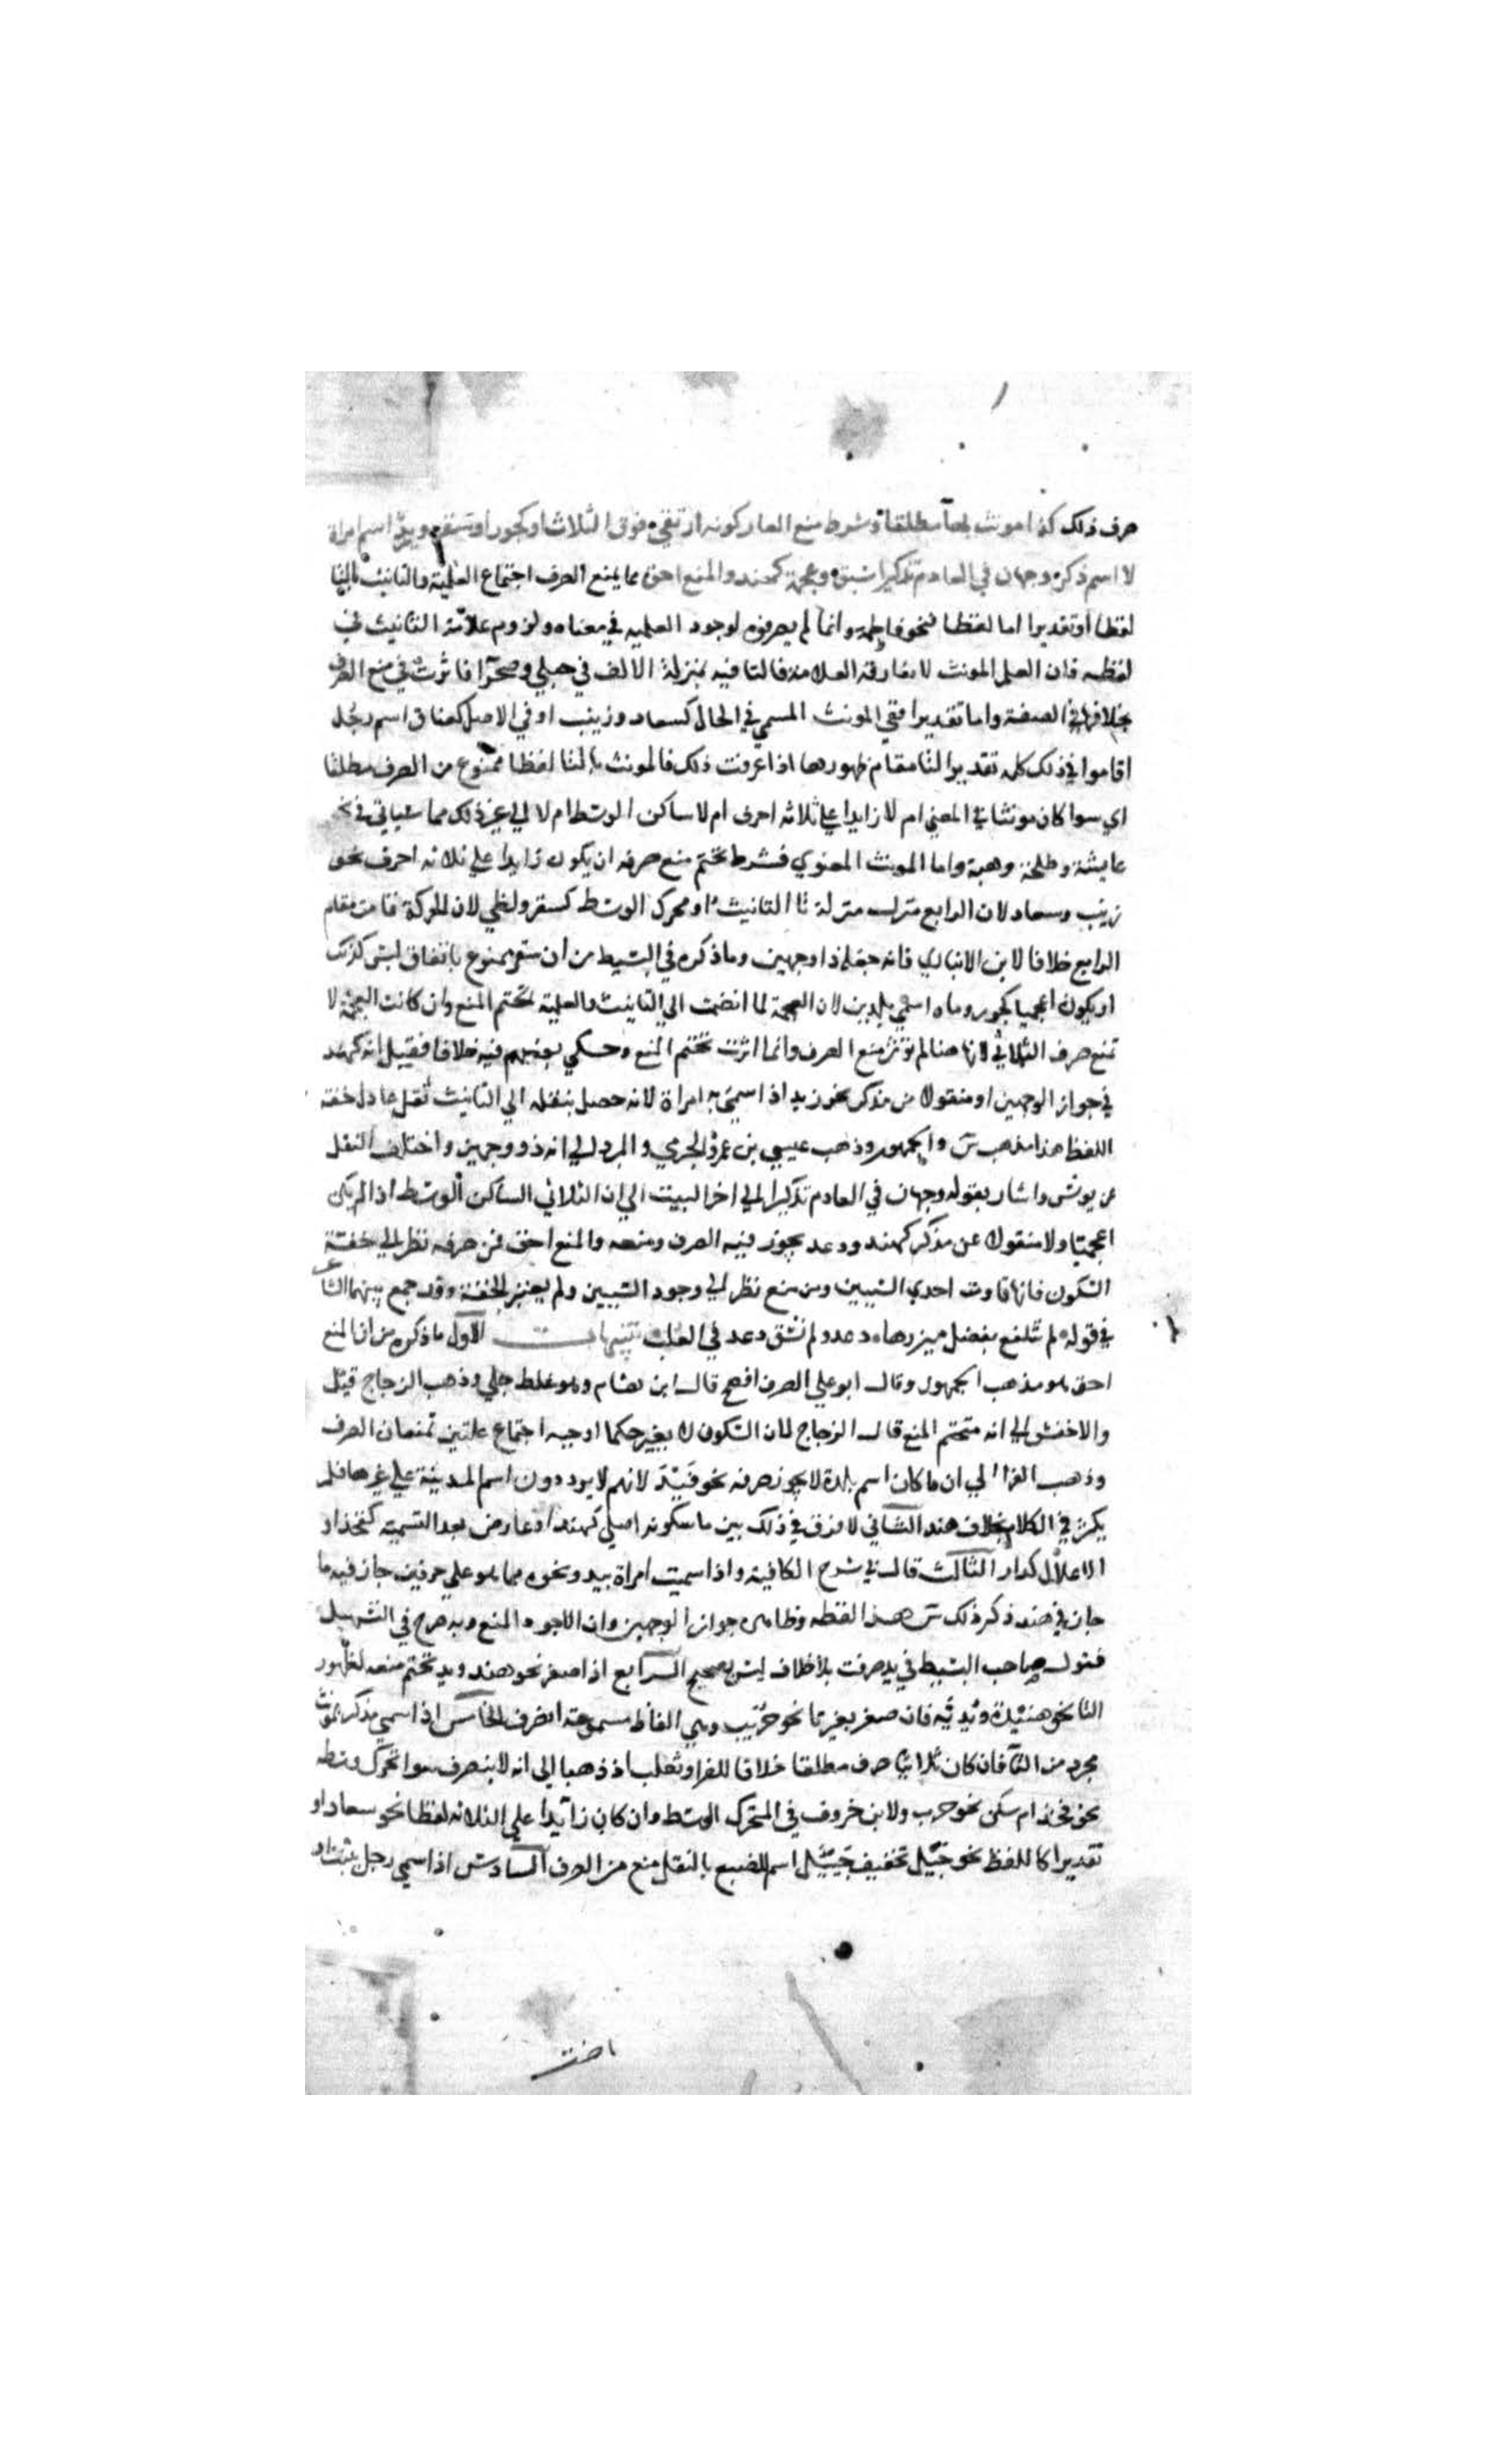 صرف ذلك كذا مونث بها مطلقا وشرط منع العار كونه ارتقي فوق الثلاث او كجور او سقر او زيد اسم امراة
لا اسم ذكر وجهان في العادم تذكيرا سبق وعجمة كهند والمنع احق مما يمنع الصرف اجتماع العلمية والتانيث بالتا
لفظا او تقديرا اما لفظا فنحو فاطمة وانما لم يصرفوه لوجود العلميه في معناه ولزوم علامة التانيث في
لفظه فان العلم المونث لا تفارقه العلامة فالتا فيه بمنزلة الالف في حبلي وصحرا فاثرت في منع الصرف
بخلافها في الصفة واما تقديرا ففي المونث المسمي في الحال كسعاد وزينب او في الاصل كعناق اسم رجل
اقاموا في ذلك كله تقدير التا مقام ظهورها اذا عرفت ذلك فالمونث بالتا لفظا ممنوع من الصرف مطلقا
اي سوا كان مونثا في المعني ام لا زايدا علي ثلاثه احرف ام لا ساكن الوسط ام لا الي غير ذلك مما سياتي في نحو
عايشة وطلحة وهبة واما المونث المعنوي فشرط تحتم منع صرفه ان يكون زايدا علي ثلاثه احرف نحو
زينب وسعاد لان الرابع منزل منزلة تا التانيث او محرك الوسط كسقر ولظي لان الحركة قامت مقام
الرابع خلافا لابن الانباري فانه جعله ذا وجهين وما ذكره في البسيط من ان سقر ممنوع باتفاق ليس كذلك
او يكون اعجميا كجور وماه اسمي بلدين لان العجمة لما انضمت الي التانيث والعلمية تحتم المنع وان كانت العجمة لا
تمنع صرف الثلاثي لانها هنا لم توثر منع الصرف وانما اثرت تحتم المنع وحكي بعضهم فيه خلافا فقيل انه كهند
في جواز الوجهين او منقولا من مذكر نحو زيد اذا سمي به امراة لانه حصل بنقله الي التانيث ثقل عادل خفة
اللفظ هذا مذهب س والجمهور وذهب عيسي بن عمر والجرمي والمبرد الي انه ذو وجهين واختلف النقل
عن يونس واشار بقوله وجهان في العادم تذكيرا الي اخر البيت الي ان الثلاثي الساكن الوسط اذا لم يكن
اعجميا ولا منقولا عن مذكر كهند ودعد يجوز فيه الصرف ومنعه والمنع احق فمن صرفه نظر الي خفة
السكون فانها قاومت احدي السببين ومن منع نظر الي وجود السببين ولم يعتبر الخفة وقد جمع بينهما الشاعر
في قوله لم تتلفع بفضل ميزرها دعد ولم تسق دعد في العلب تنبيهات الاول ما ذكره من ان المنع
احق هو مذهب الجمهور وقال ابو علي الصرف افصح قال ابن هشام وهو غلط جلي وذهب الزجاج قيل
والاخفش الي انه متحتم المنع قال الزجاج لان السكون لا يغير حكما اوجبه اجتماع علتين تمنعان الصرف
وذهب الفرا الي ان ما كان اسم بلدة لا يجوز صرفه نحو فيد لانهم لا يرددون اسم المدينة علي غيرها فلم
يكثر في الكلام بخلاف هند الثاني لا فرق في ذلك بين ما سكونه اصلي كهند او عارض بعد التسمية كفخذ او
الاعلال كدار الثالث قال في شرح الكافية واذا سميت امراة بيد ونحوه مما هو علي حرفين جاز فيه ما
جاز في هند ذكر ذلك س هذا لفظه وظاهره جواز الوجهين وان الاجود المنع وبه صرح في التسهيل
فقول صاحب البسيط في يد صرفت بلا خلاف ليس بصحيح الرابع اذا صغر نحو هند ويد تحتم منعه لظهور
التا نحو هنيدة ويدية فان صغر بغير تا نحو حريب وهي الفاظ مسموعة انصرف الخامس اذا سمي مذكر بمونث
مجرد من التا فان كان ثلاثيا صرف مطلقا خلافا للفرا وثعلب اذ ذهبا الي انه لا ينصرف سوا تحرك وسطه
نحو فخذ ام سكن نحو حرب ولابن خروف في المتحرك الوسط وان كان زايدا علي الثلاثه لفظا نحو سعاد او
تقديرا كاللفظ نحو جيل تخفيف جيئل اسم للضبع بالنقل منع من الصرف السادس اذا سمي رجل ببنت او
اخت